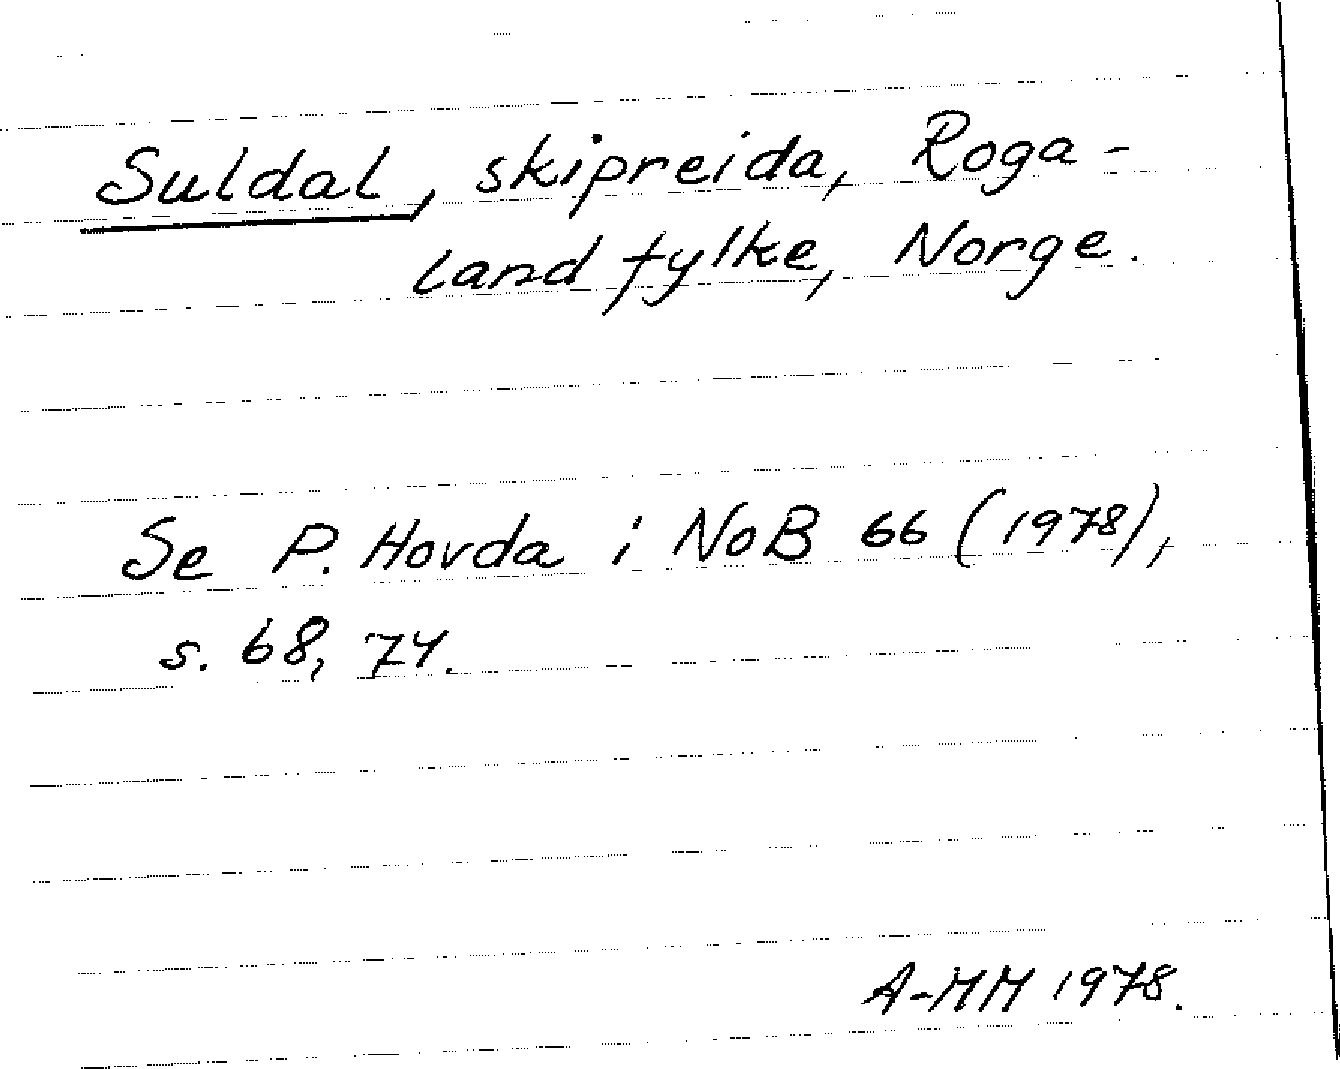 Suldal, skipreida, Roga-
land fylke, Norge.
Se P. Hovda i NoB 66 (1978),
s. 68, 74.
A-MM 1978.